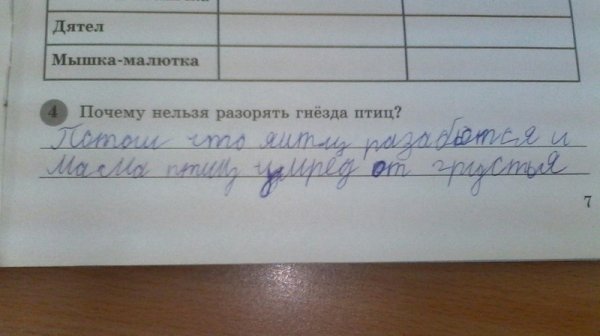 Дятел
Мышка-малютка
4 Почему нельзя разорять гнёзда птиц?
Потом что яитц разабются и
мама птиц умред от грустья
7